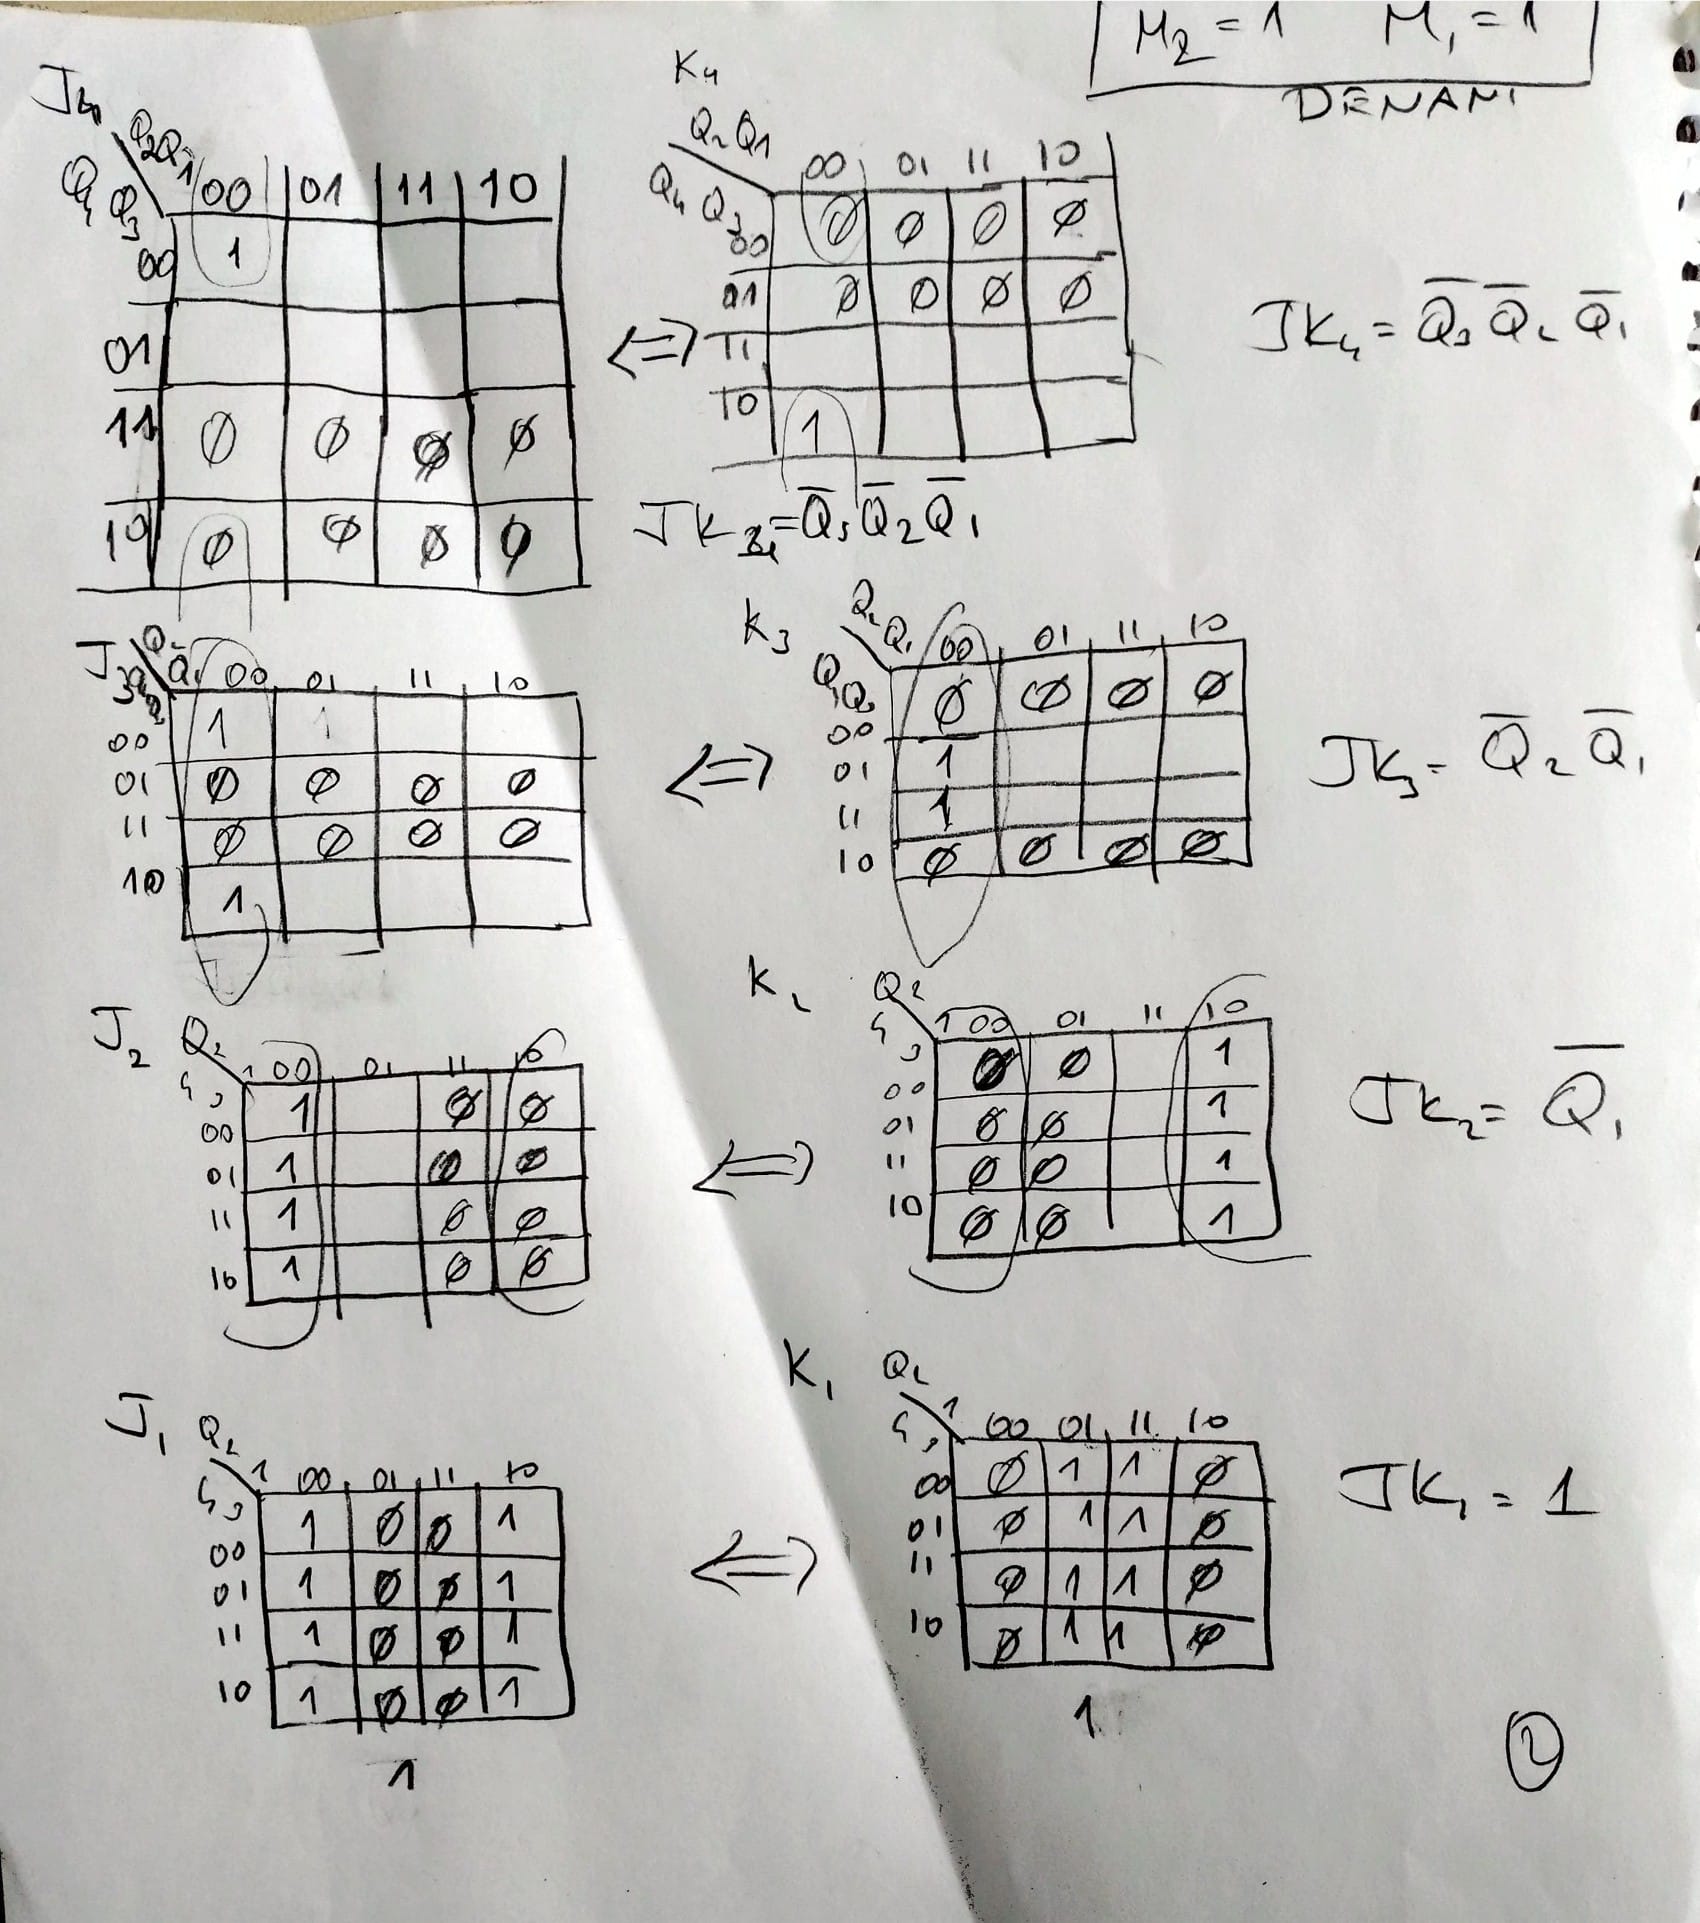 M2 = 1 M1 = 1
DENANI
J4
Q2Q1
Q4 Q3
00 01 11 10
00 1
01
11 Ø Ø Ø Ø
10 Ø Ø Ø Ø
K4
Q2 Q1
Q4 Q3
00 01 11 10
00 Ø Ø Ø Ø
01 Ø Ø Ø Ø
11
10 1
⇔
JK4 = Q̅3 Q̅2 Q̅1
JK4 = Q̅3 Q̅2 Q̅1
J3
Q2 Q1
00 01 11 10
00 1 1
01 Ø Ø Ø Ø
11 Ø Ø Ø Ø
10 1
⇔
K3
Q2 Q1
Q4 Q3
00 01 11 10
00 Ø Ø Ø Ø
01 1
11 1
10 Ø Ø Ø Ø
JK3 = Q̅2 Q̅1
J2
Q2 1
4 3
00 01 11 10
00 1 Ø Ø
01 1 Ø Ø
11 1 Ø Ø
10 1 Ø Ø
⇔
K2
Q2 1
4 3
00 01 11 10
00 Ø Ø 1
01 Ø Ø 1
11 Ø Ø 1
10 Ø Ø 1
JK2 = Q̅1
J1
Q2 1
4 3
00 01 11 10
00 1 Ø Ø 1
01 1 Ø Ø 1
11 1 Ø Ø 1
10 1 Ø Ø 1
1
⇔
K1
Q2 1
4 3
00 01 11 10
00 Ø 1 1 Ø
01 Ø 1 1 Ø
11 Ø 1 1 Ø
10 Ø 1 1 Ø
1
JK1 = 1
2